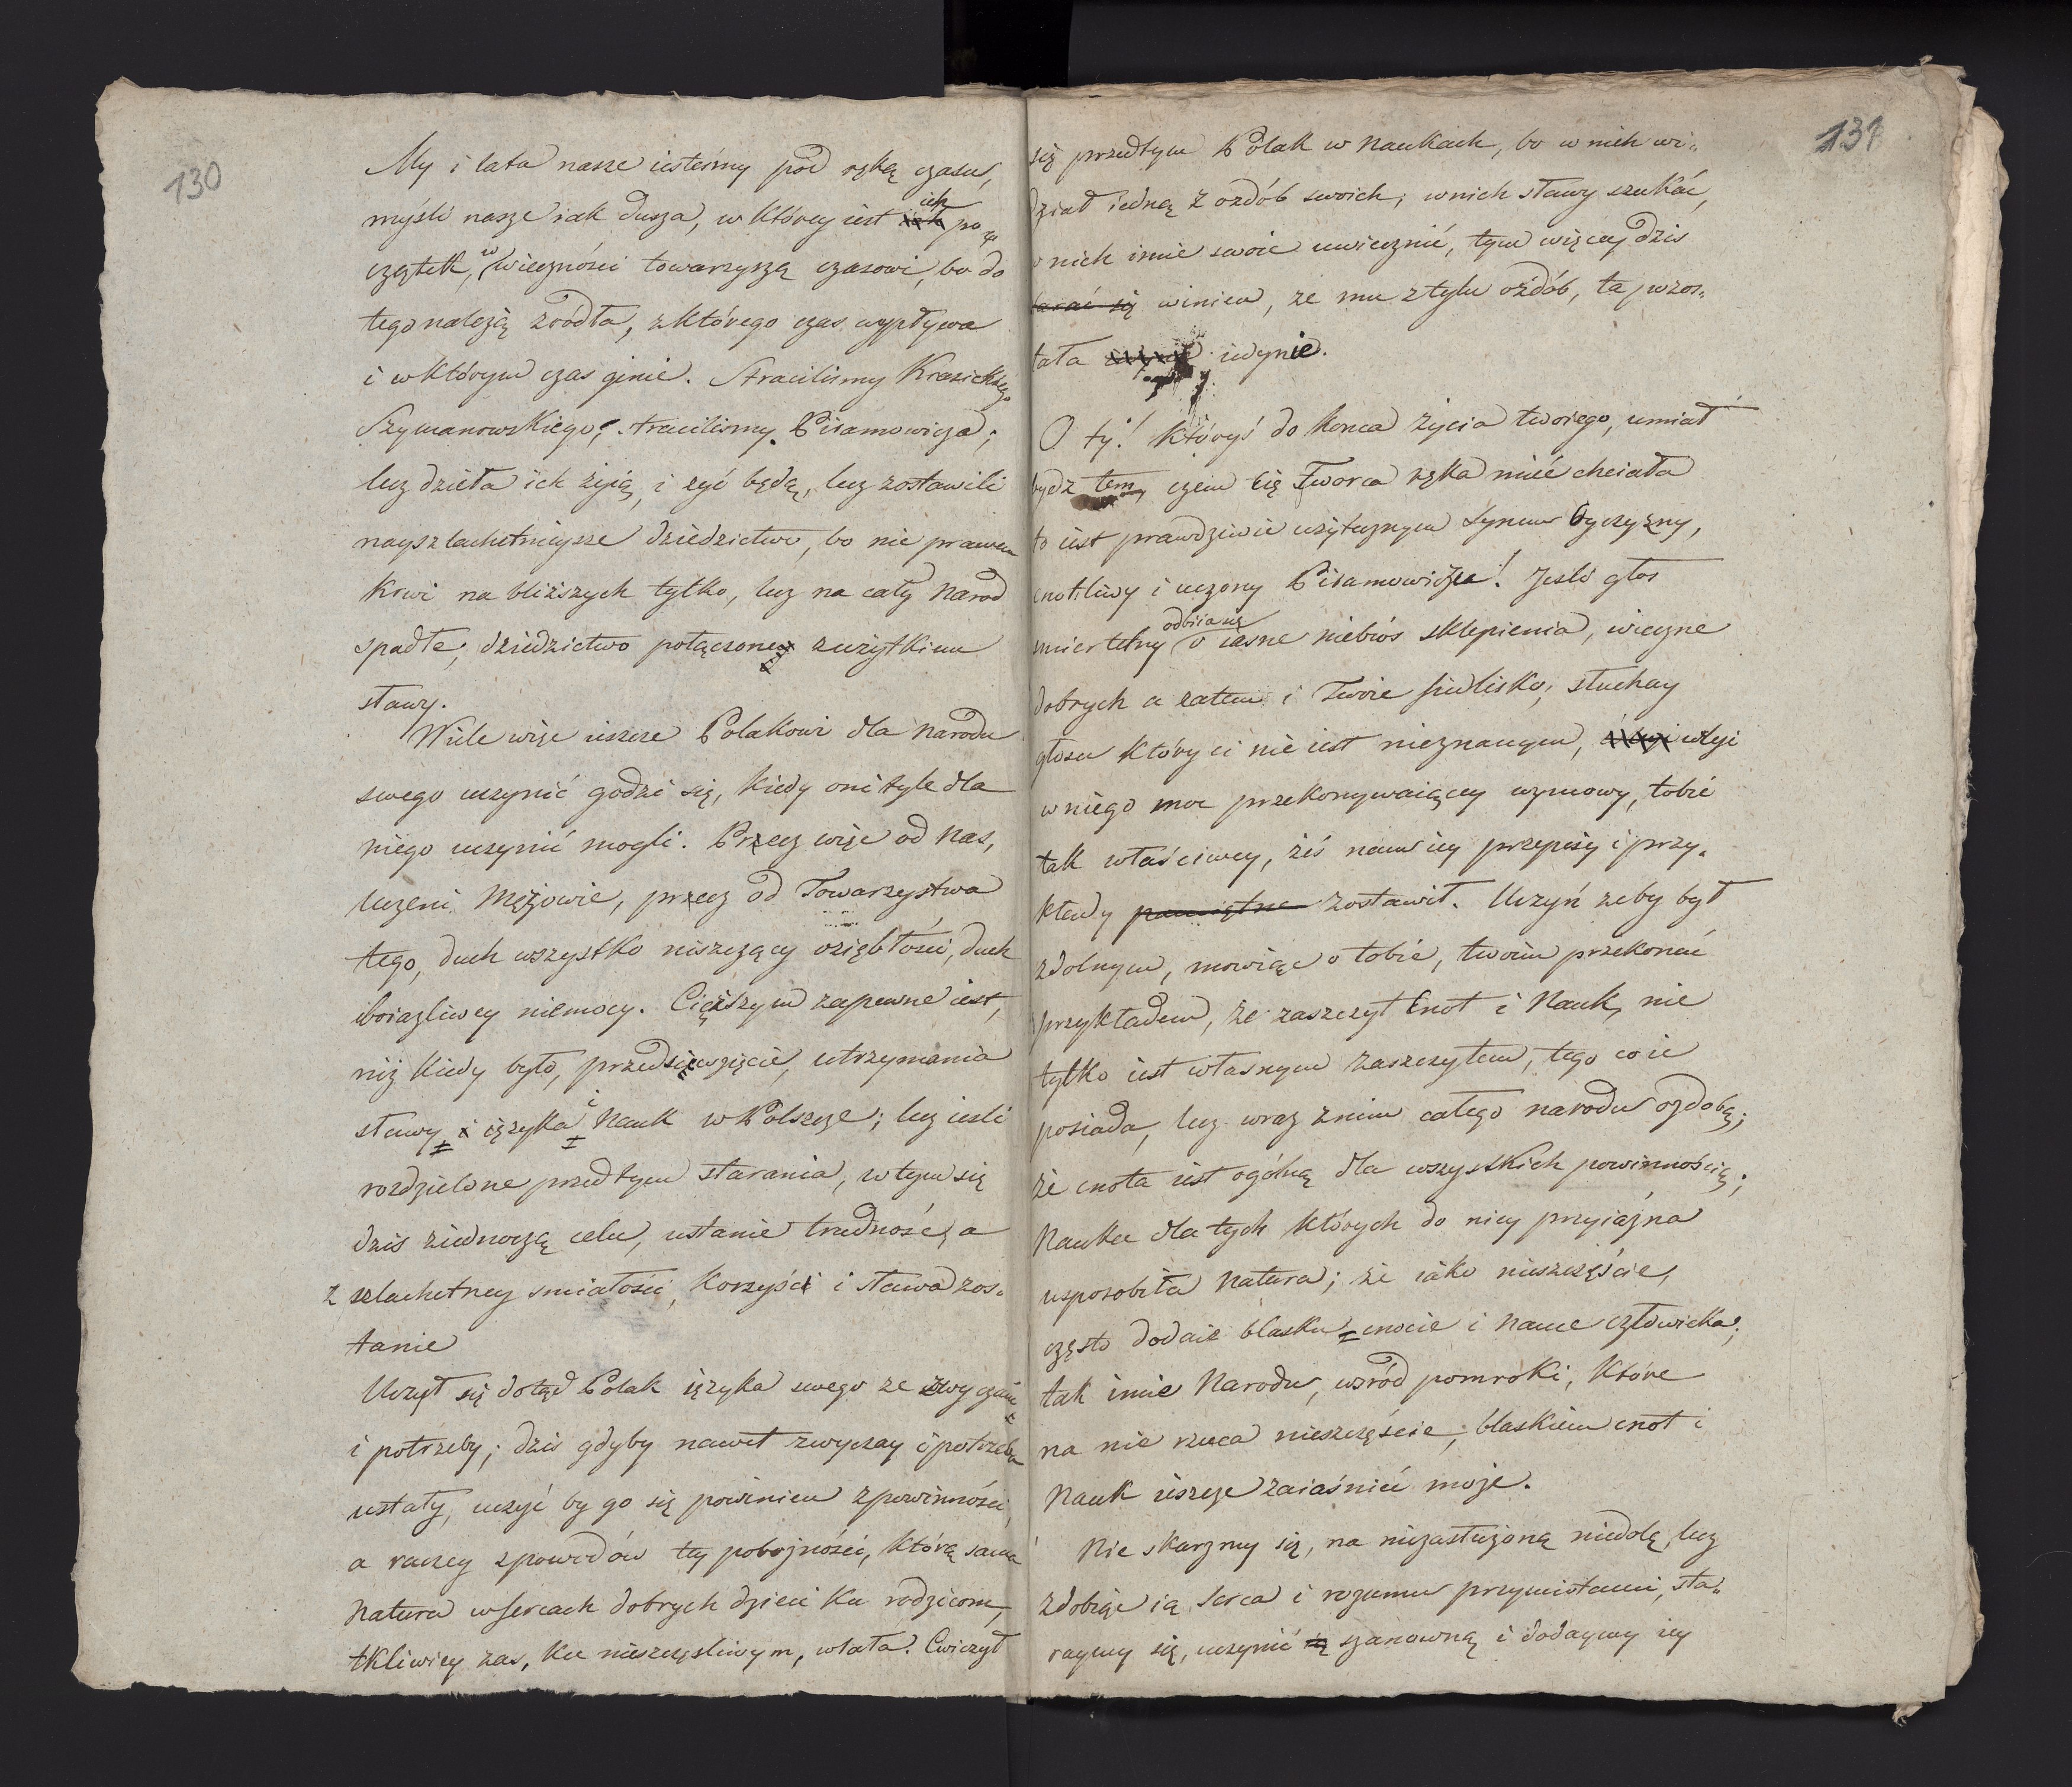 130
My i lata nasze iesteśmy pod ręką czasu,
myśli nasze iak dusza, w którey iest ich po„
czątek, w wieczności towarzyszą czasowi, bo do
tego należą zrodła, z którego czas wypływa
i w którym czas ginie. Straciliśmy Krasickiego
Szymanowskiego; straciliśmy Piramowicza;
lecz dzieła ich żyią, i żyć będą, lecz zostawili
nayszlachetnieysze dziedzictwo, bo nie prawem
krwi na bliższych tylko, lecz na cały Narod
spadłe, dziedzictwo połączone z użytkiem
sławy.
Wiele więc ieszcze Polakowi dla Narodu
swego uczynić godzi się, kiedy oni tyle dla
niego uczynić mogli. Precz więc od nas,
uczeni Mężowie, precz od Towarzystwa
tego, duch wszystko niszczący oziębłości, duch
boiazliwey niemocy. Cięższym zapewne iest,
niż kiedy było, przedsięwzięcie, utrzymania
sławy ięzyka i Nauk w Polszcze; lecz iesli
rozdzielone przedtym starania, w tym się
dzis ziednoczą celu, ustanie trudność, a
z szlachetney smiałości, korzyść i sława zos„
tanie
Uczył się dotąd Polak ięzyka swego ze zwyczaiu
i potrzeby; dzis gdyby nawet zwyczay i potrzeba
ustały, uczyć by go się powinien z powinności,
a raczey z powodów tey pobożności, którą sama
Natura w sercach dobrych dzieci ku rodzicom,
tkliwiey zas, ku nieszczęsliwym, wlała. Cwiczył
131
się przedtym Polak w Naukach, bo w nich wi„
dział iedną z ozdób swoich; w nich sławy szukać,
w nich imie swoie uwiecznić, tym więcey dzis
starać się winien, że mu z tylu ozdób, ta pozos„
tała iedynie.
O ty! któryś do konca życia twoiego, umiał
bydz tem, czem cię Tworca ręka mieć chciała
to iest prawdziwie użytecznym synem Oyczyzny,
cnotliwy i uczony Piramowiczu! Jesli głos
smiertelny odbiia się o iasne niebios sklepienia, wieczne
dobrych a zatem i Twoie siedlisko; słuchay
głosu który ci nie iest nieznanym, wley
w niego moc przekonywaiącey wymowy, tobie
tak właściwey, żeś nam iey przepisy i przy„
kłady pamiętne zostawił. Uczyń żeby był
zdolnym, mowiąc o tobie, twoim przekonać
przykładem, że zaszczyt Cnot i Nauk, nie
tylko iest własnym zaszczytem, tego co ie
posiada, lecz wraz z nim całego narodu ozdobą;
że cnota iest ogólną dla wszystkich powinnością;
Nauka dla tych których do niey przyiazna
usposobiła Natura; że iako nieszczęście,
często dodaie blasku cnocie i Nauce człowieka;
tak imie Narodu, wsród pomroki, które
na nie rzuca nieszczęście, blaskiem cnot i
Nauk ieszcze zaiaśnieć może.
Nie skarzmy się, na niezasłużoną niedolę, lecz
zdobiąc ią serca i rozumu przymiotami, sta„
raymy się, uczynić ią szanowną i dodaymy iey